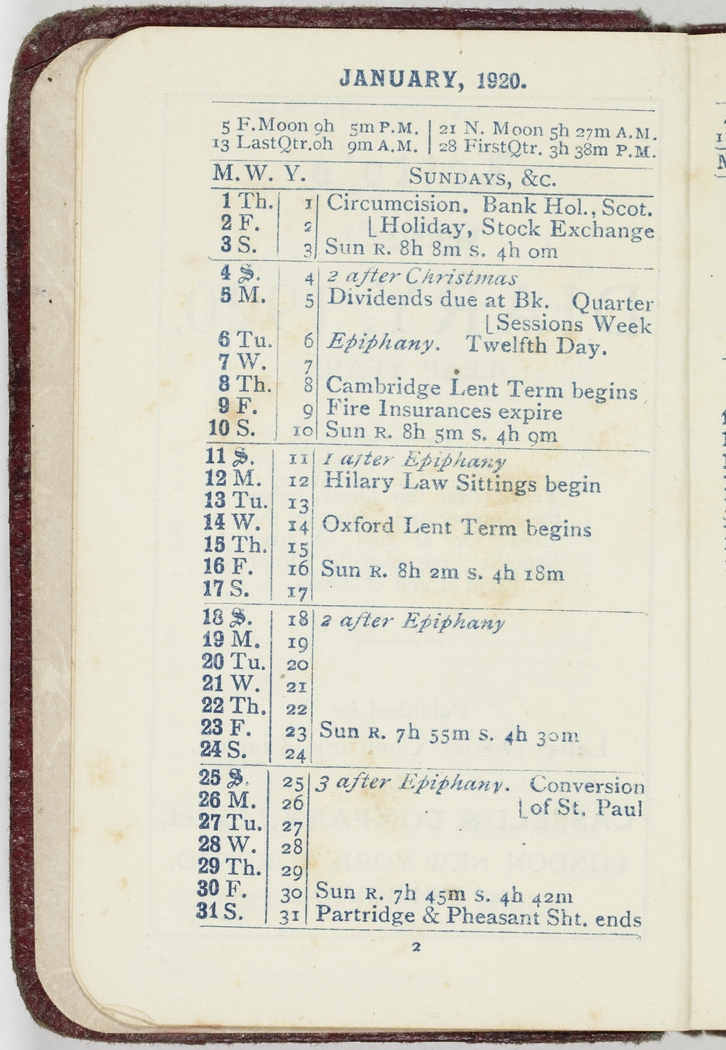 JANUARY, 1920.
5 F.Moon 9h 5m P.M. | 21 N. Moon 5h 27m A.M.
13 LastQtr.0h 9m A.M. | 28 FirstQtr. 3h 38m P.M.
M. W. Y. SUNDAYS, &C.
1 Th. 1 Circumcision. Bank Hol., Scot.
2 F. 2 [Holiday, Stock Exchange
3 S. 3 Sun R. 8h 8m s. 4h 0m
4 S. 4 2 after Christmas
5 M. 5 Dividends due at Bk. Quarter
[Sessions Week
6 Tu. 6 Epiphany. Twelfth Day.
7 W. 7
8 Th. 8 Cambridge Lent Term begins
9 F. 9 Fire Insurances expire
10 S. 10 Sun R. 8h 5m s. 4h 9m
11 S. 11 1 after Epiphany
12 M. 12 Hilary Law Sittings begin
13 Tu. 13
14 W. 14 Oxford Lent Term begins
15 Th. 15
16 F. 16 Sun R. 8h 2m s. 4h 18m
17 S. 17
18 S. 18 2 after Epiphany
19 M. 19
20 Tu. 20
21 W. 21
22 Th. 22
23 F. 23 Sun R. 7h 55m s. 4h 30m
24 S. 24
25 S. 25 3 after Epiphany. Conversion
26 M. 26 [of St. Paul
27 Tu. 27
28 W. 28
29 Th. 29
30 F. 30 Sun R. 7h 45m s. 4h 42m
31 S. 31 Partridge & Pheasant Sht. ends
2